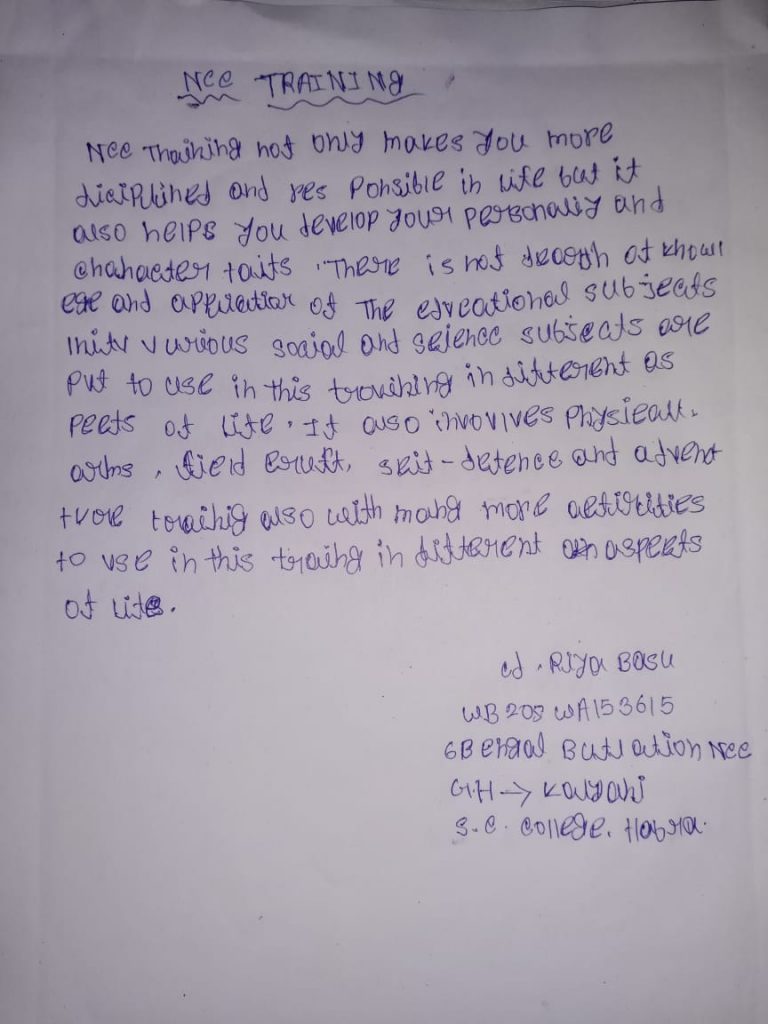 NCC TRAINING
NCC Training not only makes you more
diciplined and res ponsible in life but it
also helps you develop your personaliy and
character taits . There is not of knowl
ege and application of The educational subjects
various social and science subjects are
put to use in this training in different as
pects of life . It also invovives Physical.
arms , field craft, self-defence and advent
ture training also with many more activities
to use in this traing in different aspects
of life.
cd . Riya Basu
WB 20S WA153615
6 Bengal Battation NCC
G.H → Kalyani
S.C. College. Habra.